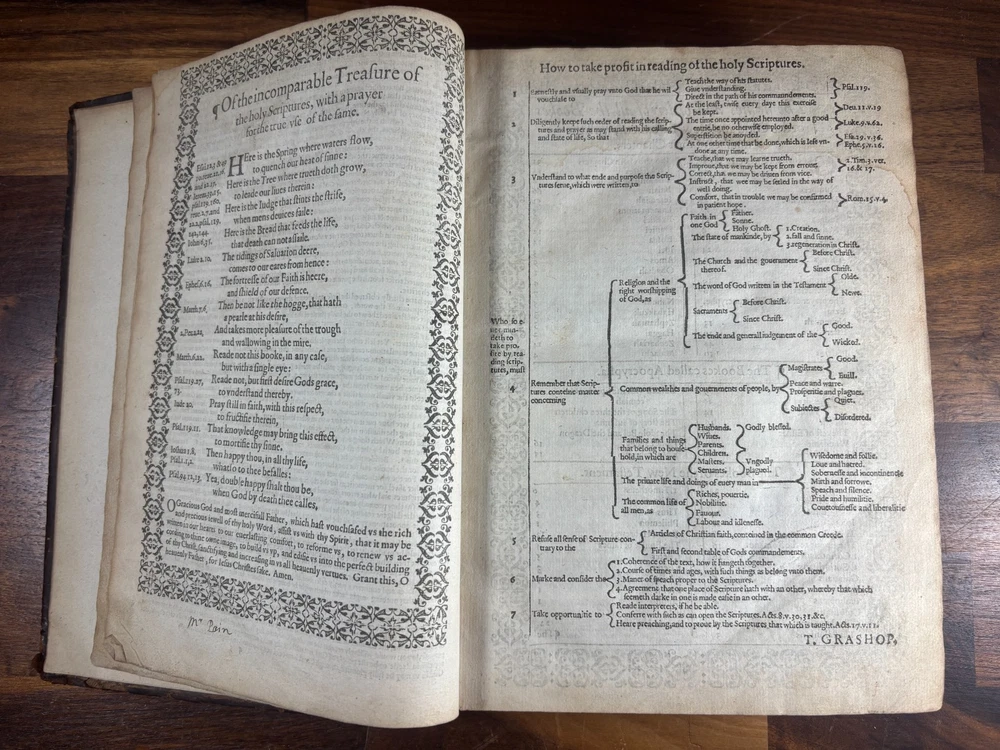 ¶Of the incomparable Treasure of
the holy Scriptures, with a prayer
for the true vse of the same.
HEre is the Spring where waters flow,
to quench our heat of sinne:
Here is the Tree where trueth doth grow,
to leade our liues therein:
Here is the Iudge that stints the strife,
when mens deuices faile:
Here is the Bread that feeds the life,
that death can not assaile.
The tidings of Saluation deere,
comes to our eares from hence:
The fortresse of our Faith is heere,
and shield of our defence.
Then be not like the hogge, that hath
a pearle at his desire,
And takes more pleasure of the trough
and wallowing in the mire.
Reade not this booke, in any case,
but with a single eye:
Reade not, but first desire Gods grace,
to vnderstand thereby.
Pray still in faith, with this respect,
to fructifie therein,
That knowledge may bring this effect,
to mortifie thy sinne.
Then happy thou, in all thy life,
what so to thee befalles:
Yea, double happy shalt thou be,
when God by death thee calles,
O Gracious God and most mercifull Father, which hast vouchsafed vs the rich
and precious iewell of thy holy Word, assist vs with thy Spirit, that it may be
written in our hearts to our euerlasting comfort, to reforme vs, to renew vs ac-
cording to thine owne image, to build vs vp, and edifie vs into the perfect building
of thy Christ, sanctifying and increasing in vs all heauenly vertues. Grant this, O
heauenly Father, for Iesus Christes sake. Amen.
Iohn 6.35.
Luke 2.10.
Ephes.6.16.
Matth.7.6.
2.Pet.2.22.
Matth.6.22.
Psal.119.27,
73.
Iude 20.
Psal.119.11.
Ioshua 1.8.
Psal.1.1,2.
Psal.94.12,13.
Mr Pain
How to take profit in reading of the holy Scriptures.
Who so e-
uer min-
deth to
take pro-
fite by rea-
ding scrip-
tures, must
1 Earnestly and vsually pray vnto God that he wil
vouchsafe to
Teach the way of his statutes.
Giue vnderstanding.
Direct in the path of his commandements.
Psal.119.
2 Diligently keepe such order of reading the scrip-
tures and prayer as may stand with his calling
and state of life, So that
At the least, twise euery day this exercise
be kept.
The time once appointed hereunto after a good
entrie, be no otherwise employed.
Superstition be auoyded.
At one other time that be done, which is left vn-
done at any time.
Deu.11.v.19
Luke.9.v.62.
Esa.29.v.36.
Ephe.5.v.16.
3 Vnderstand to what ende and purpose the Scrip-
tures serue, which were written, to
Teache, that we may learne trueth.
Improue, that we may be kept from errour.
Correct, that we may be driuen from vice.
Instruct, that we may be setled in the way of
well doing.
Comfort, that in trouble we may be confirmed
in patient hope.
2.Tim.3.ver.
16.& 17.
Rom.15.v.4.
4 Remember that Scrip-
tures conteine matter
concerning
Religion and the
right worshipping
of God, as
Faith in
one God
Father.
Sonne.
Holy Ghost.
The state of mankinde, by
1.Creation.
2.fall and sinne.
3.regeneration in Christ.
The Church and the gouernment
thereof.
Before Christ.
Since Christ.
The word of God written in the Testament
Olde.
Newe.
Sacraments
Before Christ.
Since Christ.
The ende and generall iudgement of the
Good.
Wicked.
Common wealthes and gouernments of people, by
Magistrates
Good.
Euill.
Peace and warre.
Prosperitie and plagues.
Subiectes
Quiet.
Disordered.
Families and things
that belong to house-
hold, in which are
Husbands.
Wiues.
Parents.
Children.
Masters.
Seruants.
Godly blessed.
Vngodly
plagued.
The priuate life and doings of euery man in
Wisedome and follie.
Loue and hatred.
Sobernesse and incontinencie
Mirth and sorrowe.
Speach and silence.
Pride and humilitie.
Couetousnesse and liberalitie
The common life of
all men, as
Riches, pouertie.
Nobilitie.
Fauour.
Labour and idlenesse.
5 Refuse all sense of Scripture con-
trary to the
Articles of Christian faith, conteined in the common Creede.
First and second table of Gods commandements.
6 Marke and consider the
1.Coherence of the text, how it hangeth together.
2.Course of times and ages, with such things as belong vnto them.
3.Maner of speach proper to the Scriptures.
4.Agreement that one place of Scripture hath with an other, whereby that which
seemeth darke in one is made easie in an other.
7 Take opportunitie to
Reade interpreters, if he be able.
Conferre with such as can open the Scriptures. Acts.8.v.30,31.&c.
Heare preaching, and to proue by the Scriptures that which is taught. Acts.17.v.11.
T. GRASHOP.